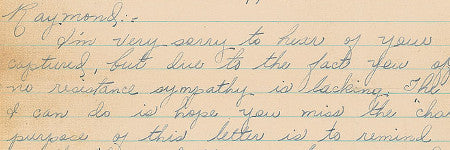 Raymond:-
I'm very sorry to hear of your
captured, but due to the fact you of
no resistance sympathy is lacking. The
I can do is hope you miss the "cha
purpose of this letter is to remind